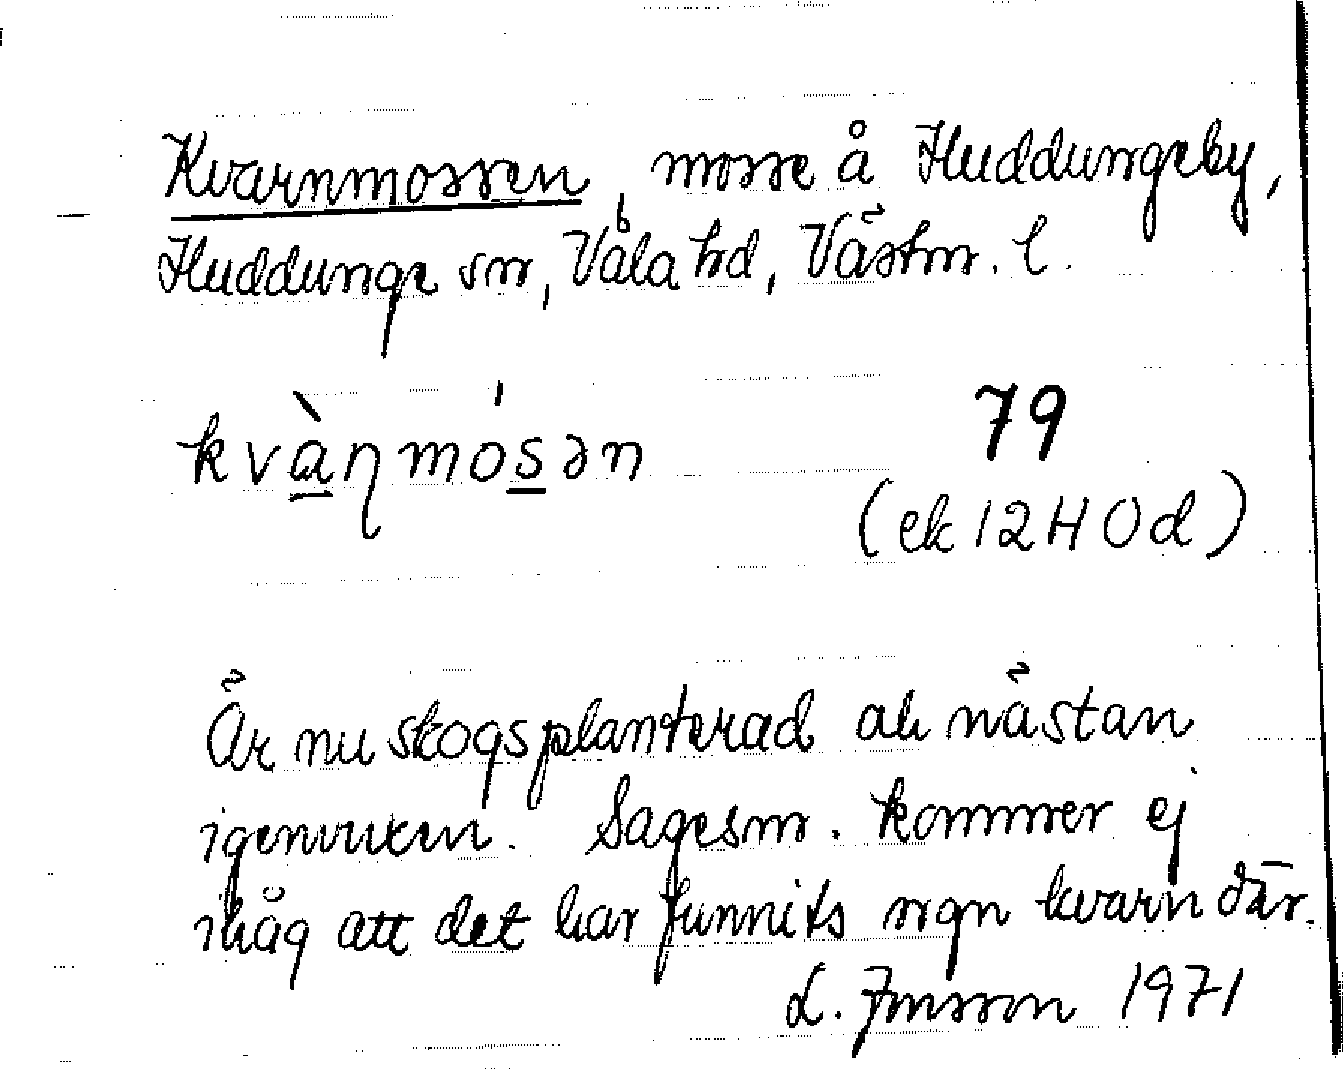 Kvarnmossen, mosse å Huddungeby,
Huddunge sn, Våla hd, Västm. l.
kvàɳmósən
79
(ek 12H0d)
Är nu skogsplanterad och nästan
igenvuxen. Sagesm. kommer ej
ihåg att det har funnits ngn kvarn där.
L. Jonsson 1971